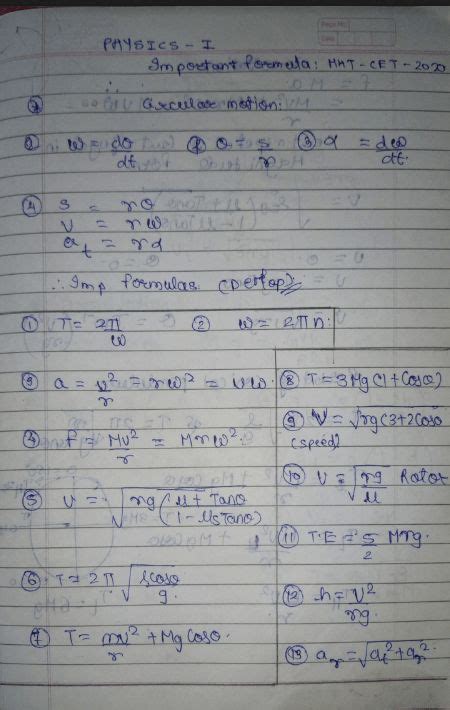 Page No.
Date
PHYSICS - I
Important formula: MHT-CET-2020
Circular motion:
ω = dθ/dt ① θ = s/r ③ α = dω/dt.
④ s = rθ
v = rω
at = rα
∴ Imp formulas
① T = 2π/ω ② ω = 2πn.
③ a = v²/r = rω² = vω.
④ F = Mv²/r = Mrω².
⑤ v = √rg(μ + Tanθ/1 - μsTanθ)
⑥ T = 2π√lcosθ/g.
⑦ T = mv²/r + Mgcosθ.
⑧ T = 3Mg(1+cosθ)
⑨ V = √rg(3+2cosθ
(speed)
⑩ V = √rg/μ Rotor
⑪ T.E = 5/2 Mrg.
⑫ h = v²/rg.
⑬ ar = √at²+ar².